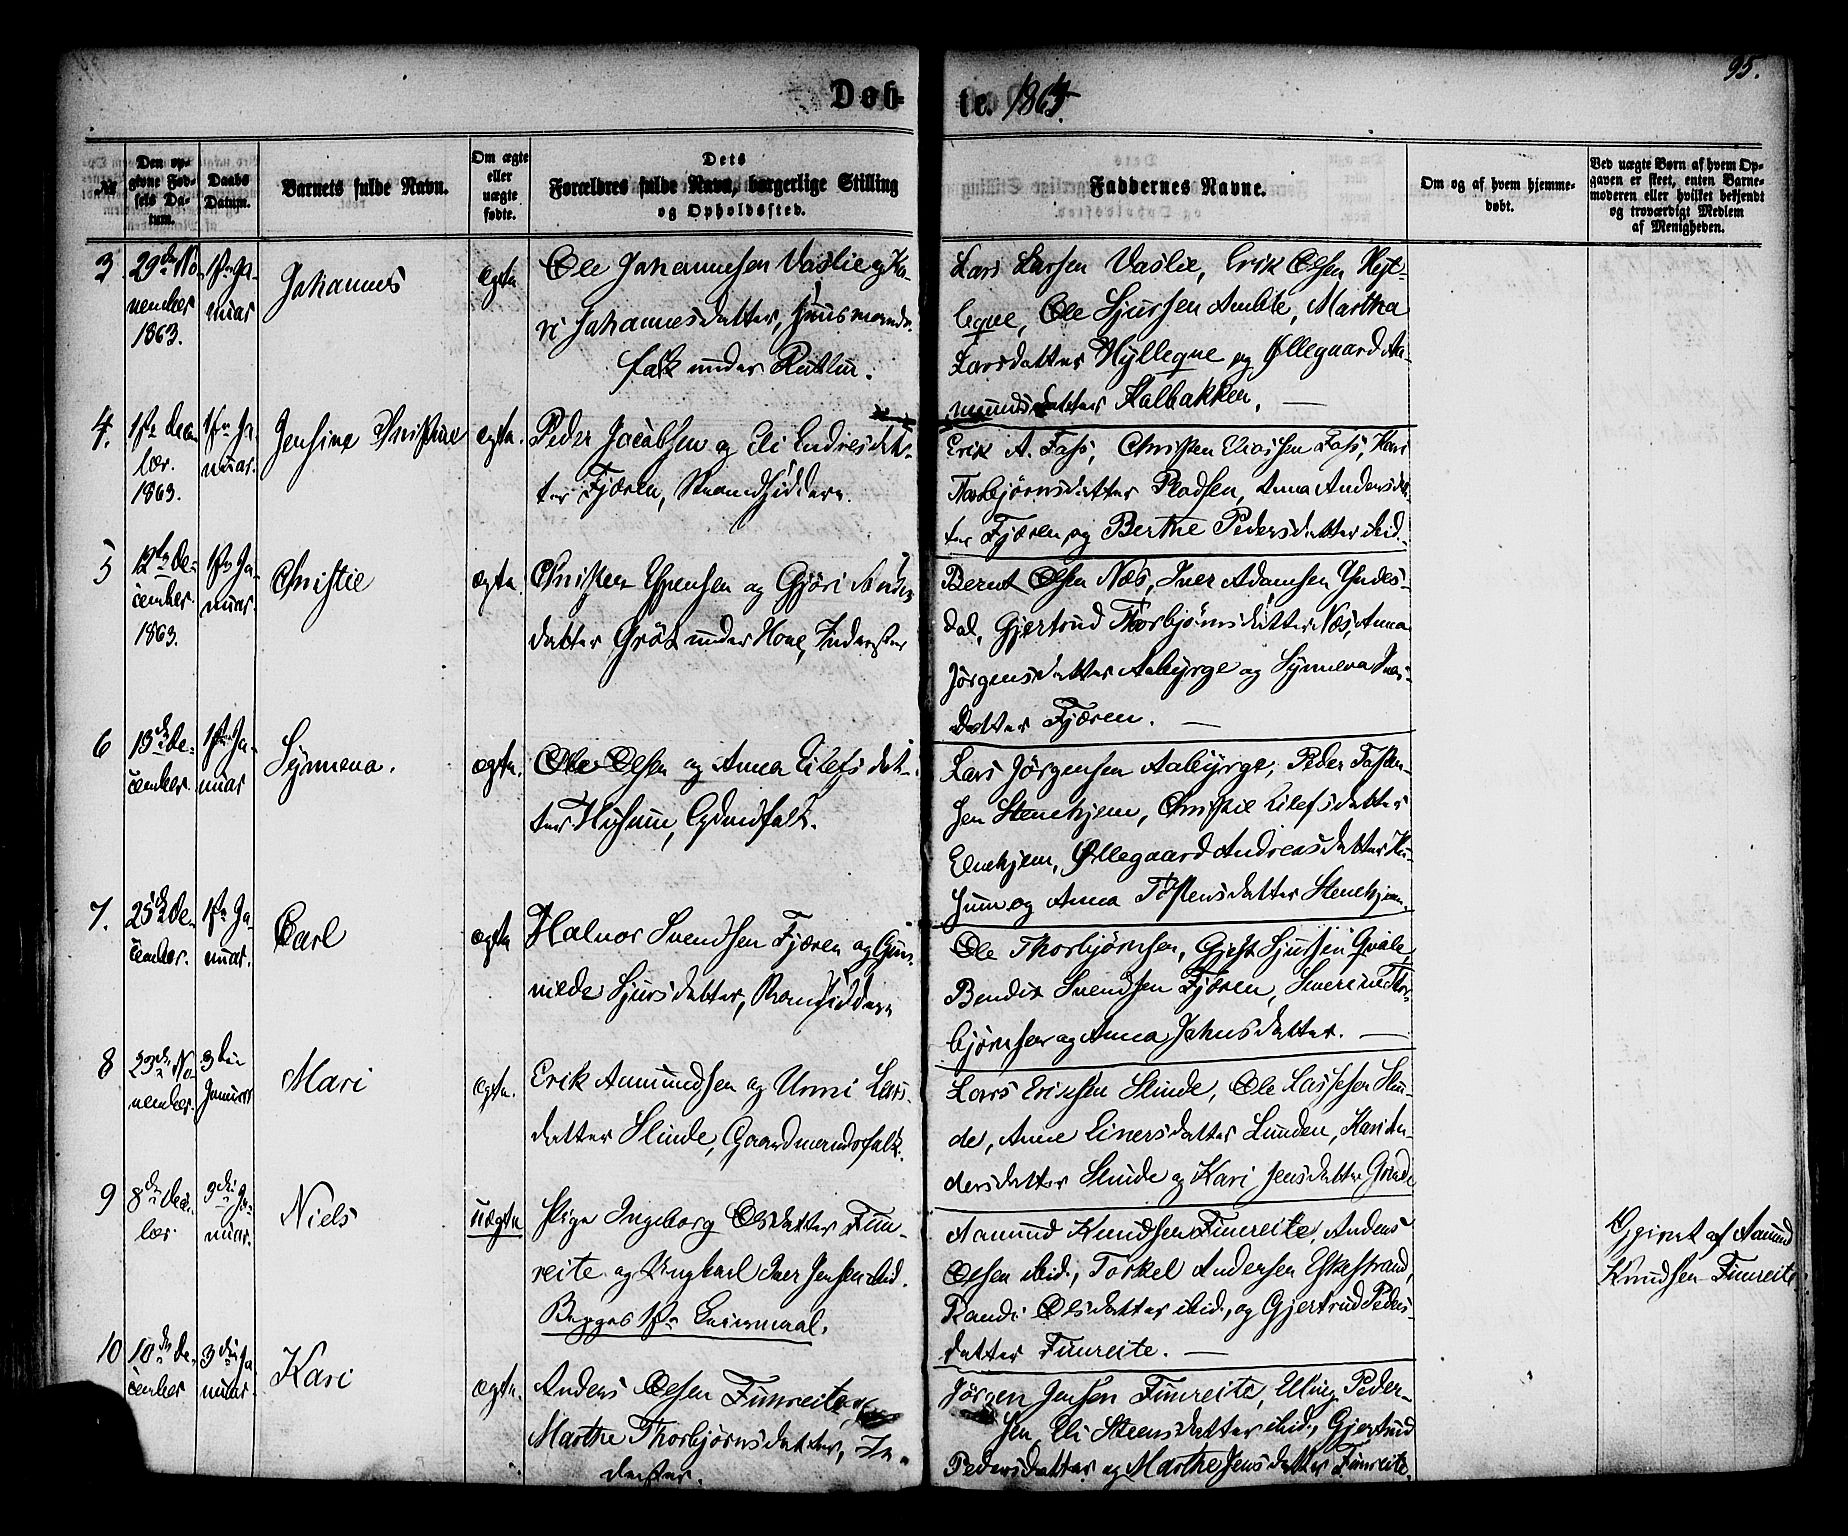 95.
Døb-
te. 1864.
No
Den op-
givne Fød-
sels Da-
tum.
Daabs
Datum.
Barnets fulde Navn.
Om ægte
eller
uægte
født.
Dets
Forældres fulde Navn, borgerlige Stilling
og Opholdssted.
Faddernes Navne.
Om og af hvem hjemme-
døbt.
Ved uægte Børn af hvem Op-
gaven er skeet, enten Barne-
moderen eller hvilket bekjendt
og troværdigt Medlem
af Menigheden.
3
29de No-
vember
1863.
1ste Ja-
nuar
Johannes
ægte
Ole Johannesen Vaslie og Ka-
ri Johannesdatter, Huusmands-
folk under Rutlin.
Lars Larsen Vaslie, Erik Olsen Hyl-
leque, Ole Sjursen Amble, Martha
Larsdatter Hylleque og Øllegaard Aa-
mundsdatter Kalbakken.
4.
1ste Decem-
ber.
1863.
1ste Ja-
nuar.
Jensine Christine
ægte.
Peder Jacobsen og Eli Endresdat-
ter Fjæren, Strandsiddere.
Erik A. Foss, Christen Eliassen Foss, Kari
Thorbjørnsdatter Pladsen, Anna Andersdat-
ter Fjæren og Berthe Pedersdatter ibid.
5
12te De-
cember.
1863.
1ste Ja-
nuar.
Christie
ægte.
Christen Espensen og Gjøri Anders-
datter Grøt under Hove, Inderster
Bernt Olsen Næs, Iver Adamsen Yndes-
dal, Gjertrud Thorbjørnsdatter Næs, Anna
Jørgensdatter Aabyrge og Synneva Iver-
datter Fjæren.
6
13de De-
cember.
1ste Ja-
nuar
Synneva.
ægte.
Ole Olsen og Anna Eilefsdat-
ter Husum, Gaardfolk.
Lars Jørgensen Aabyrge, Peder Tosten-
sen Stenehjem, Christie Eilefsdatter
Stenehjem, Øllegaard Andreasdatter Hu-
sum og Anna Tostensdatter Stenehjem.
7.
25de De-
cember.
1ste Ja-
nuar.
Carl
ægte
Halvor Svendsen Fjæren og Gun-
vilde Sjursdatter, Strandsiddere
Ole Thorbjørnsen, Gjest Sjursen Qvale,
Bendix Svendsen Fjæren, Severine Thor-
bjørnsen og Anna Johnsdatter.
8
23de No-
vember.
3die
Januar
Mari
ægte.
Erik Aamundsen og Unni Lars-
datter Slinde, Gaardmandsfolk.
Lars Eriksen Slinde, Ole Lassesen Slin-
de, Anne Einersdatter Lunden, Kari An-
dersdatter Slinde og Kari Jensdatter Grinde
9
8de Decem-
ber
3die Ja-
nuar.
Niels
uægte
Pige Ingeborg Olsdatter Fim-
reite og Ungkarl Iver Jensen ibid.
Begges 1ste Leiermaal.
Aamund Knudsen Fimreite, Anders
Olsen ibid., Torkel Andersen Eskestrand,
Randi Olsdatter ibid., og Gjertrud Peders-
datter Fimreite.
Opgivet af Aamund
Knudsen Fimreite.
10
10de De-
cember
3die Ja-
nuar.
Kari
ægte.
Anders Olsen Fimreite og
Marthe Thorbjørnsdatter, In-
derster.
Jørgen Jensen Fimreite, Elling Peder-
sen, Eli Steensdatter ibid., Gjertrud
Pedersdatter og Marthe Jensdatter Fimreite.